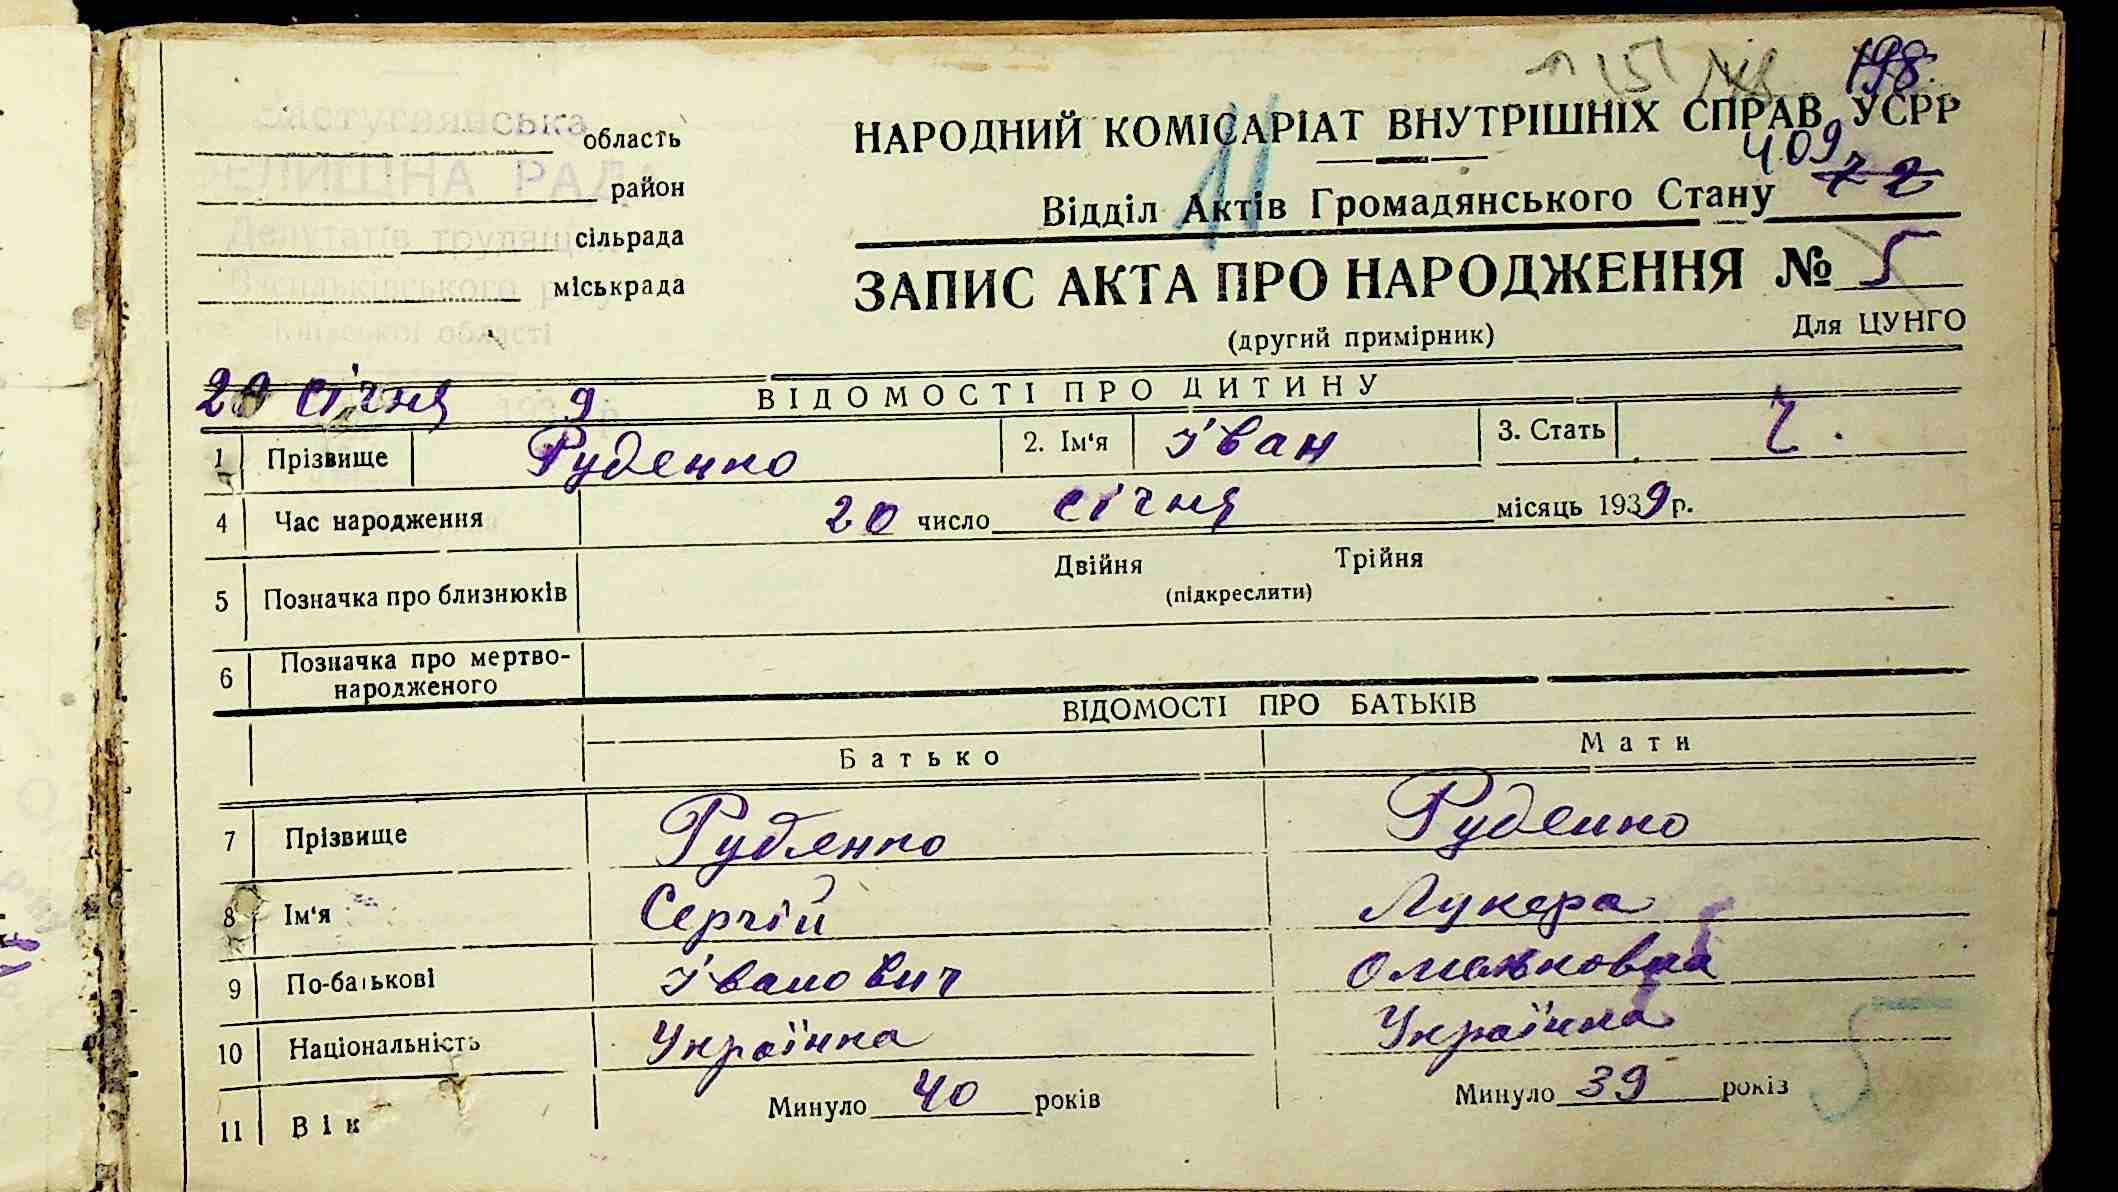 198.
НАРОДНИЙ КОМІСАРІАТ ВНУТРІШНІХ СПРАВ УСРР
409
72
11
Відділ Актів Громадянського Стану
ЗАПИС АКТА ПРО НАРОДЖЕННЯ № 5
(другий примірник)
Для ЦУНГО
область
район
сільрада
міськрада
ЕЛИЩНА РАДА
Депутатів трудящ
Київської області
20 січня 193 9 р.
ВІДОМОСТІ ПРО ДИТИНУ
1 Прізвище Руденко 2. Ім'я Іван 3. Стать ч.
4 Час народження 20 число січня місяць 1939 р.
5 Позначка про близнюків Двійня Трійня
(підкреслити)
6 Позначка про мертво-
народженого
ВІДОМОСТІ ПРО БАТЬКІВ
Батько Мати
7 Прізвище Руденко Руденко
8 Ім'я Сергій Лукера
9 По-батькові Іванович
10 Національність Українка Українка
11 Вік Минуло 40 років Минуло 39 років
5